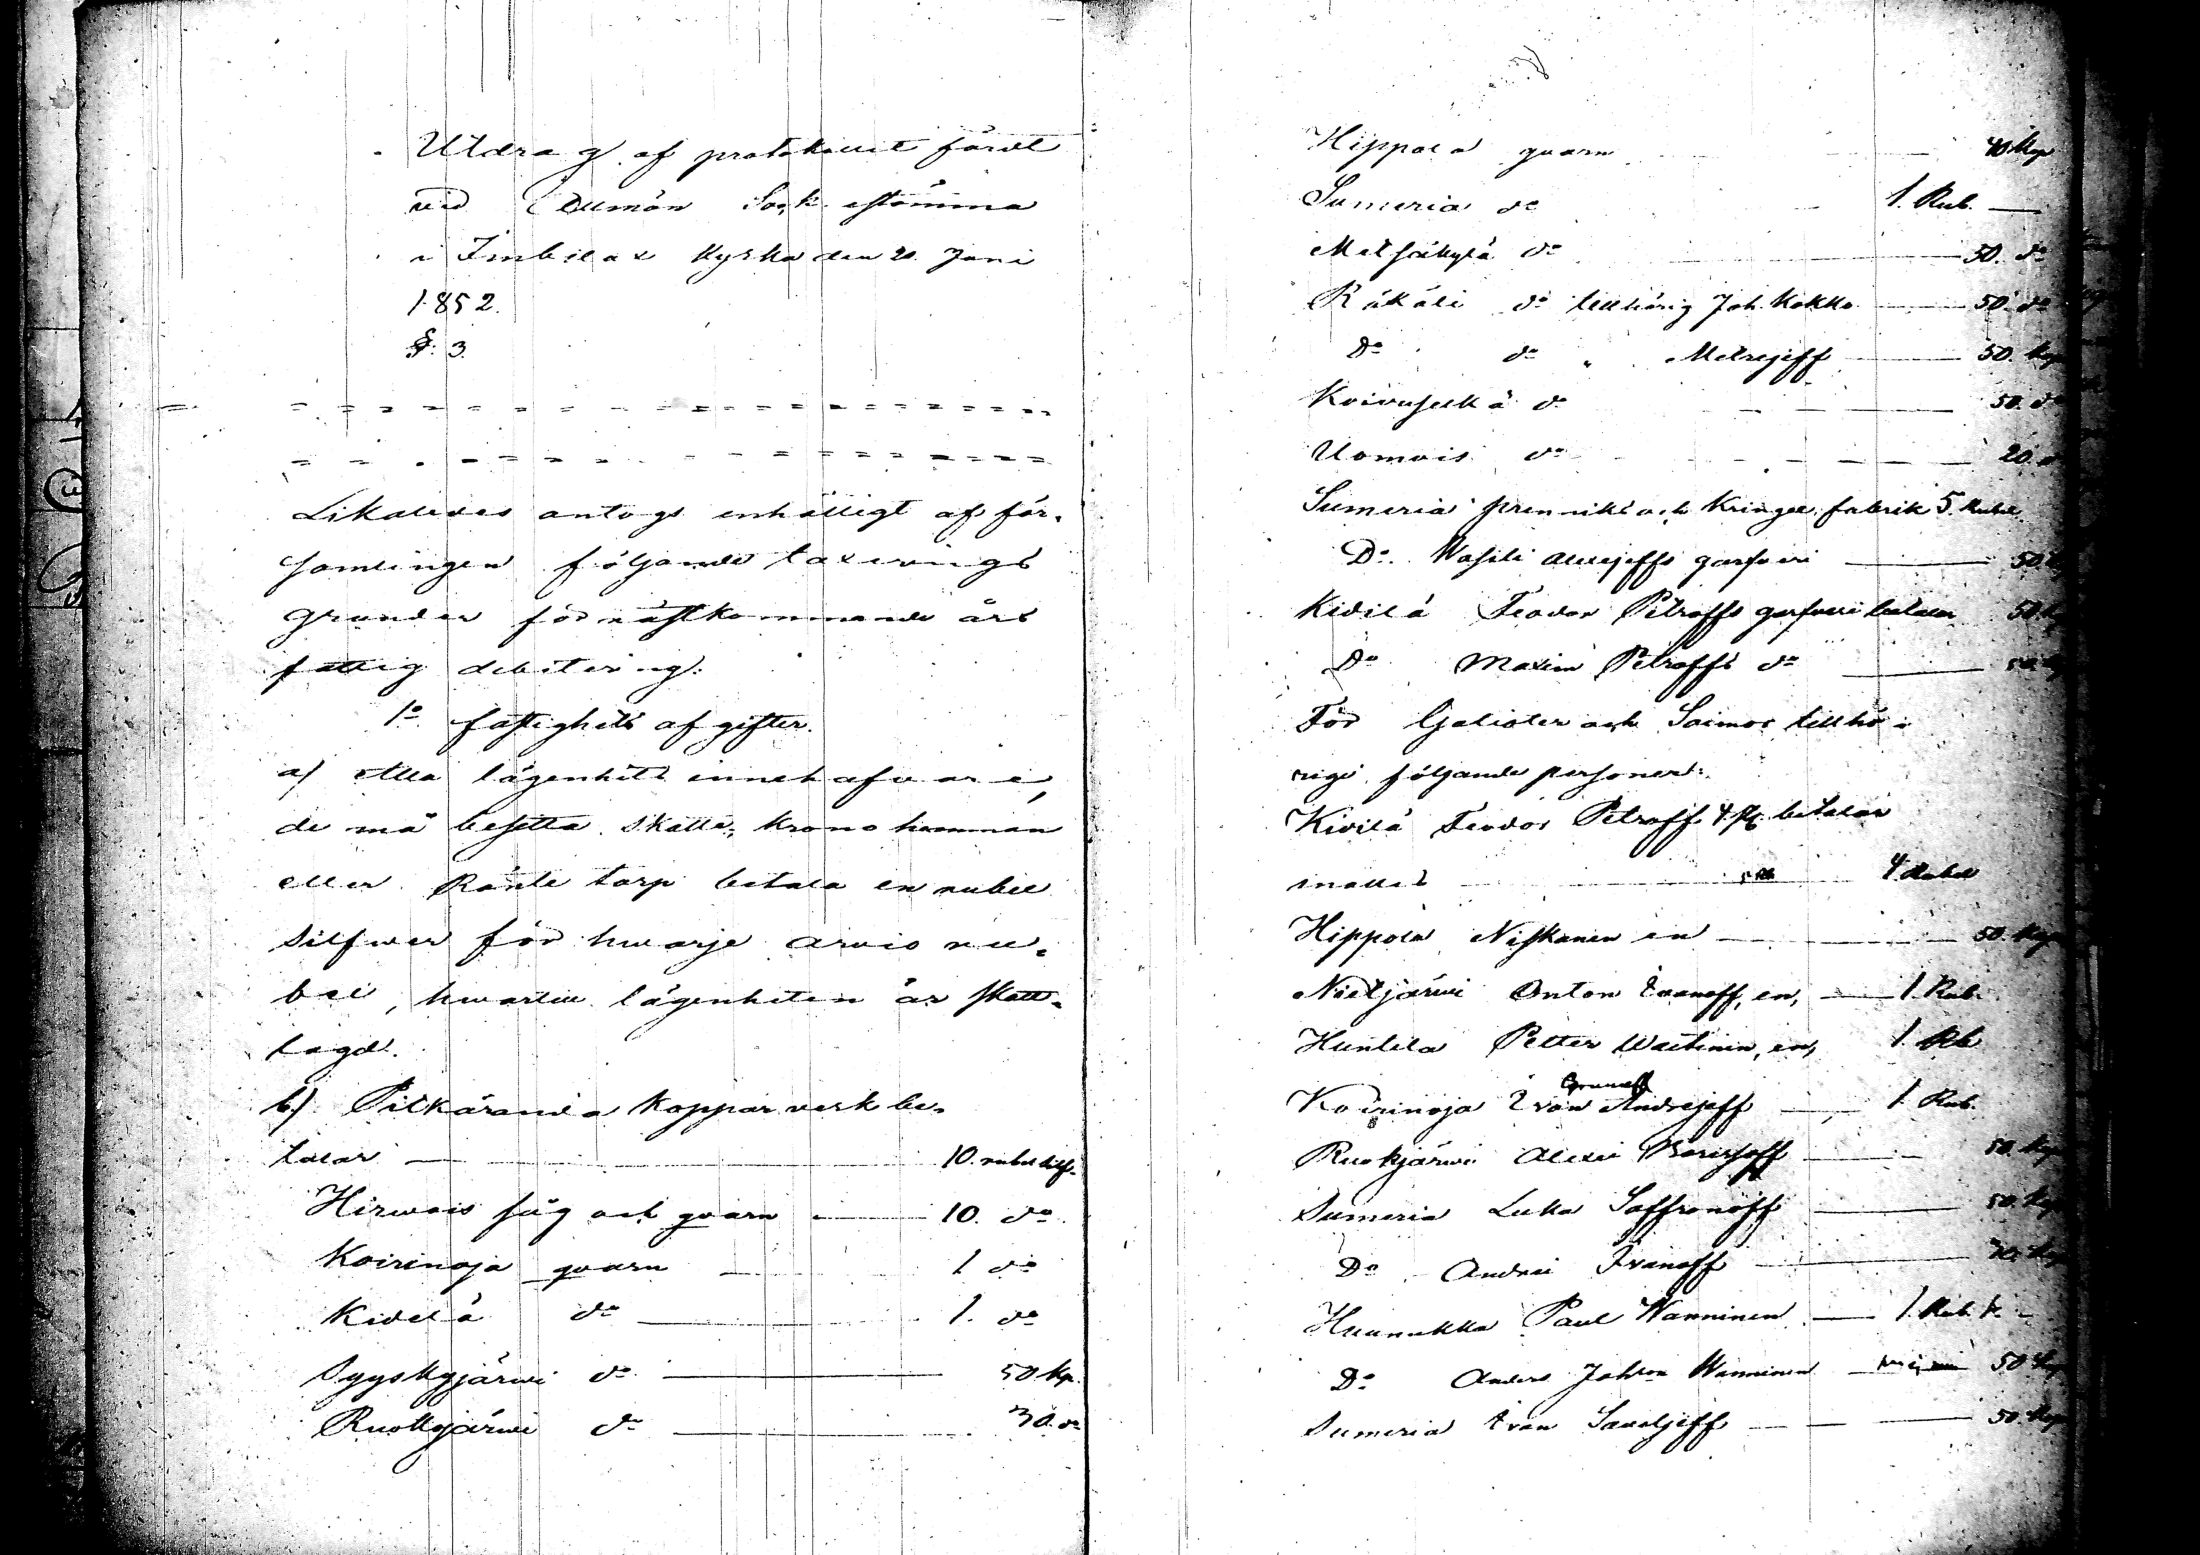 Utdrag af protokollet fördt
vid Allmän Sockenstämma
i Imbilax Kyrka den 20. Juni
1852.
§. 3.
Likaledes antogs enhälligt af för-
samlingen följande taxerings
grunder för nästkommande års
fattig debitering:
1o fastighets afgifter.
a) Alla lägenhets innehafvare,
de må besitta Skatte, Krono hemman
eller Ränte torp betala en rubel
Silfwer för hwarje arvio ru-
bel, hwartill lägenheten är skatt-
lagd.
b) Pitkäranda Kopparverk be-
talar 10. rubel silf.
Hirwois såg och qvarn 10. do
Koirinoja qvarn 1 do
Kidelä do 1. do
Syyskyjärwi do 50 kp.
Ruokojärwi do 30. do
Hippola qvarn 40 Kop
Sumeria do 1. Rub.
Metsäkylä do 50. do
Räkäli do tillhörig Joh. Kokko 50. do
Do do " Metrejeff 50. Kop
Koivuselkä do 50. do
Uomais do 20. do
Sumeria prenniks och Kringel fabrik 5. Rubel
Do. Wasili Alexejeffs garfveri 50. K
Kidilä Feodor Petroffs garfveri betalar 50. K
Do Maxim Petroffs do 50. K
För Galioter och Saimor tillhö-
rige följande personer:
Kivilä Feodor Petroff 4. betalar
4. Rubel
Hippola Niskanen en 50. Kop
Nietjärwi Anton Ivanoff, en, 1. Rub.
Huntila Petter Waitinen, en, 1. Rb
Koirinoja Ivan Andrejeff 1. Rub.
Ruokjärwi Alexei Borisoff 50. Kop
Sumeria Luka Saffronoff 50. Kop
Do Andrei Ivanoff Kop
Huunukka Paul Wanninen 1. Rub. K.
Do Anders Johan Wanninen 50. Kop
Sumeria Ivan Saveljeff 50. Kop